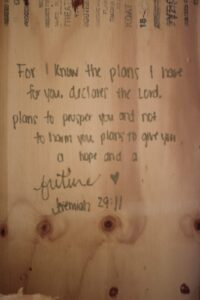 For I know the plans I have
for you, declares the Lord,
plans to prosper you and not
to harm you, plans to give you
a hope and a
future ♥
Jeremiah 29:11